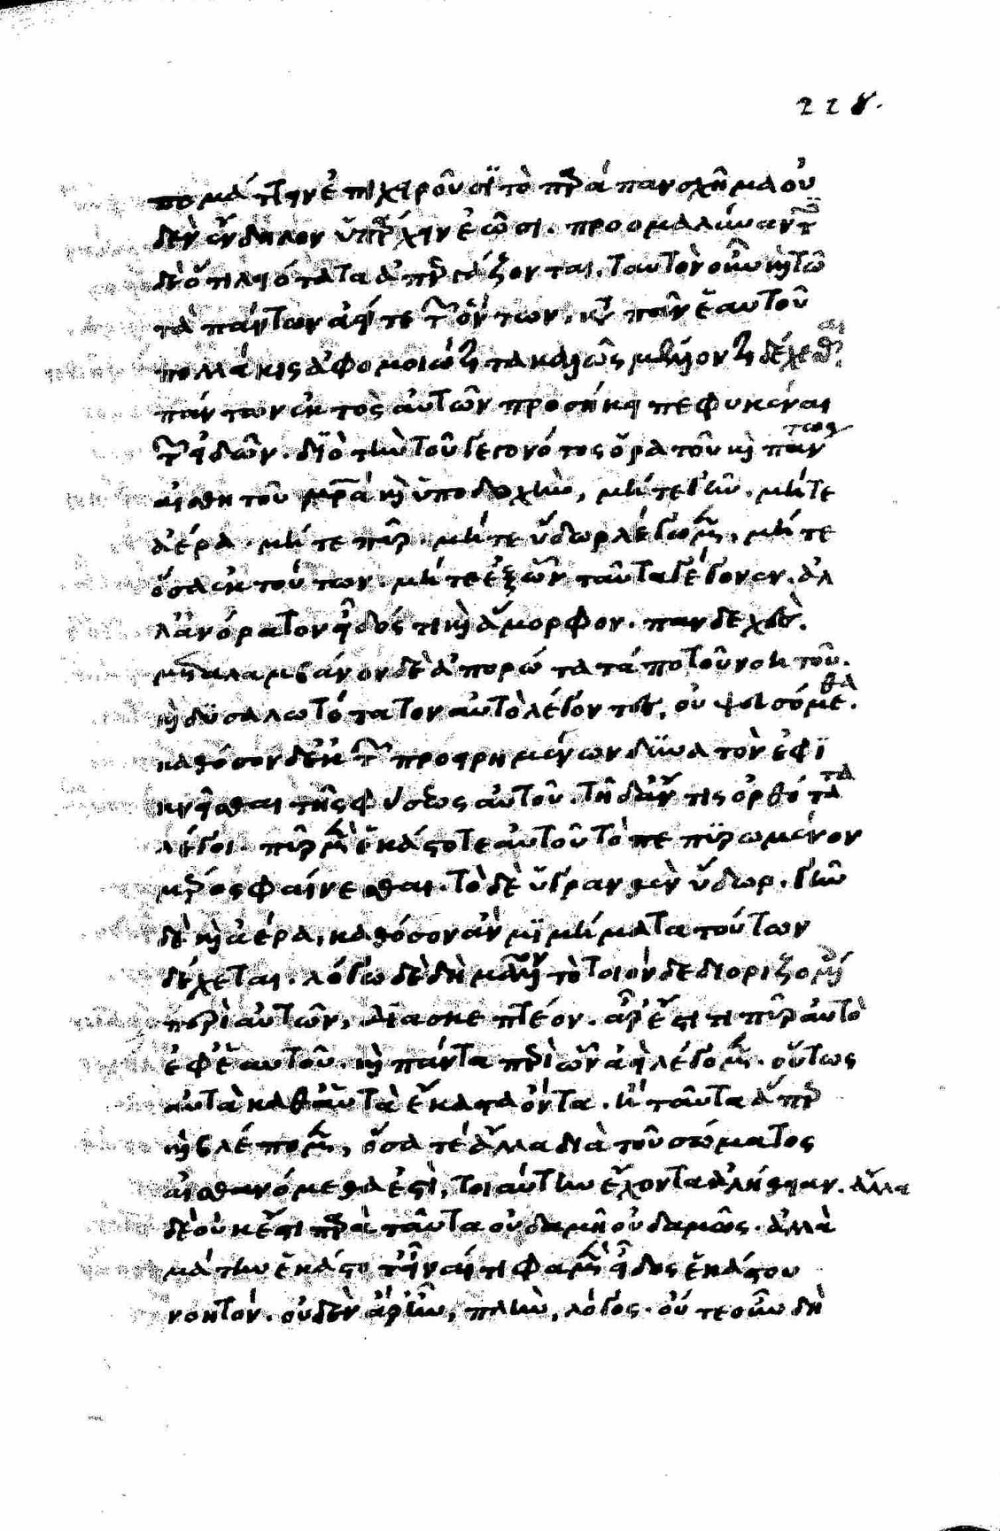 πομάττην ἐπιχιροῦσϊ τὸ πρά παν σχῆμα οὐ
δὲν ἔνδηλον ὑπάρχην ἐῶσι. προομαλύναντες
δὲ ὅτι λιότατα ἀπεργάζονται. ταυτὸν οὖν κὴ τῶ
τὰ πάντων ἀεί τε τῶν ὄντων. κατὰ πᾶν ἑαυτοῦ
πολλάκις ἀφομοιώματα καλῶς μέλλοντι δέχεσθαι
πάντων ἐκτὸς αὐτῶν προσήκη πεφυκέναι
τῶν ἰδῶν. δϊὸ τὴν τοῦ γεγονότος ὅρατοῦ κὴ πάντως
αἰσθητοῦ μρά κὴ ὑποδοχὴν, μήτε γῆν. μήτε
ἀέρα. μήτε πῦρ. μήτε ὕδωρ λέγωμεν, μήτε
ὅσα ἐκ τούτων. μήτε ἐξ ὧν ταῦτα γέγονεν. ἀλ
λἀνόρατον εἶδός τι κὴ ἄμορφον. πανδεχὲς.
μεταλαμβάνον δὲ ἀπορώτατά ποτοῦ νοητοῦ.
κὴ δϋσαλωτότατον αὐτὸ λέγοντες, οὐ ψευσόμεθα.
καθόσον δἐκ τῶν προηρημένων δϋνατὸν ἐφϊ
κνῆσθαι τῆς φύσεως αὐτοῦ. τῆδἄν τις ὀρθότατα
λέγοι. πῦρ μὲν ἑκάστοτε αὐτοῦ τὸ πεπϋρωμένον
μέρος φαίνεσθαι. τὸ δὲ ὑγρανθὲν ὕδωρ. γῆν
δὲ κὴ ἀέρα, καθόσον ἀν μϊμήματα τούτων
δέχεται. λόγω δὲ δὴ μᾶλλον τὸ τοιόνδε διοριζομένη
περὶ αὐτῶν, διασκεπτέον. ἆρ ἔστι τι πῦρ αὐτὸ
ἐφἑαυτοῦ. κὴ πάντα περὶ ὧν ἀεὶ λέγομεν. οὕτως
αὐτὰ καθἁυτὰ ἕκαστα ὄντα. ἢ ταῦτα ἅπερ
κὴ βλέπομεν, ὅσα τὲ ἄλλα διὰ τοῦ σώματος
αἰσθανόμεθα ἐστὶ, τοιαύτην ἔχοντα ἀλήθηαν. ἄλλα
δὲ οὐκ ἔστι πρὰ ταῦτα οὐδαμῆ οὐδαμῶς. ἀλλὰ
μάτην ἑκάστοτ εἶναί τι φαμὲν εἶδος ἑκάστου
νοητόν. οὐδὲν ἄρ ἦν, πλὴν, λόγος. οὔτε οὖν δὴ